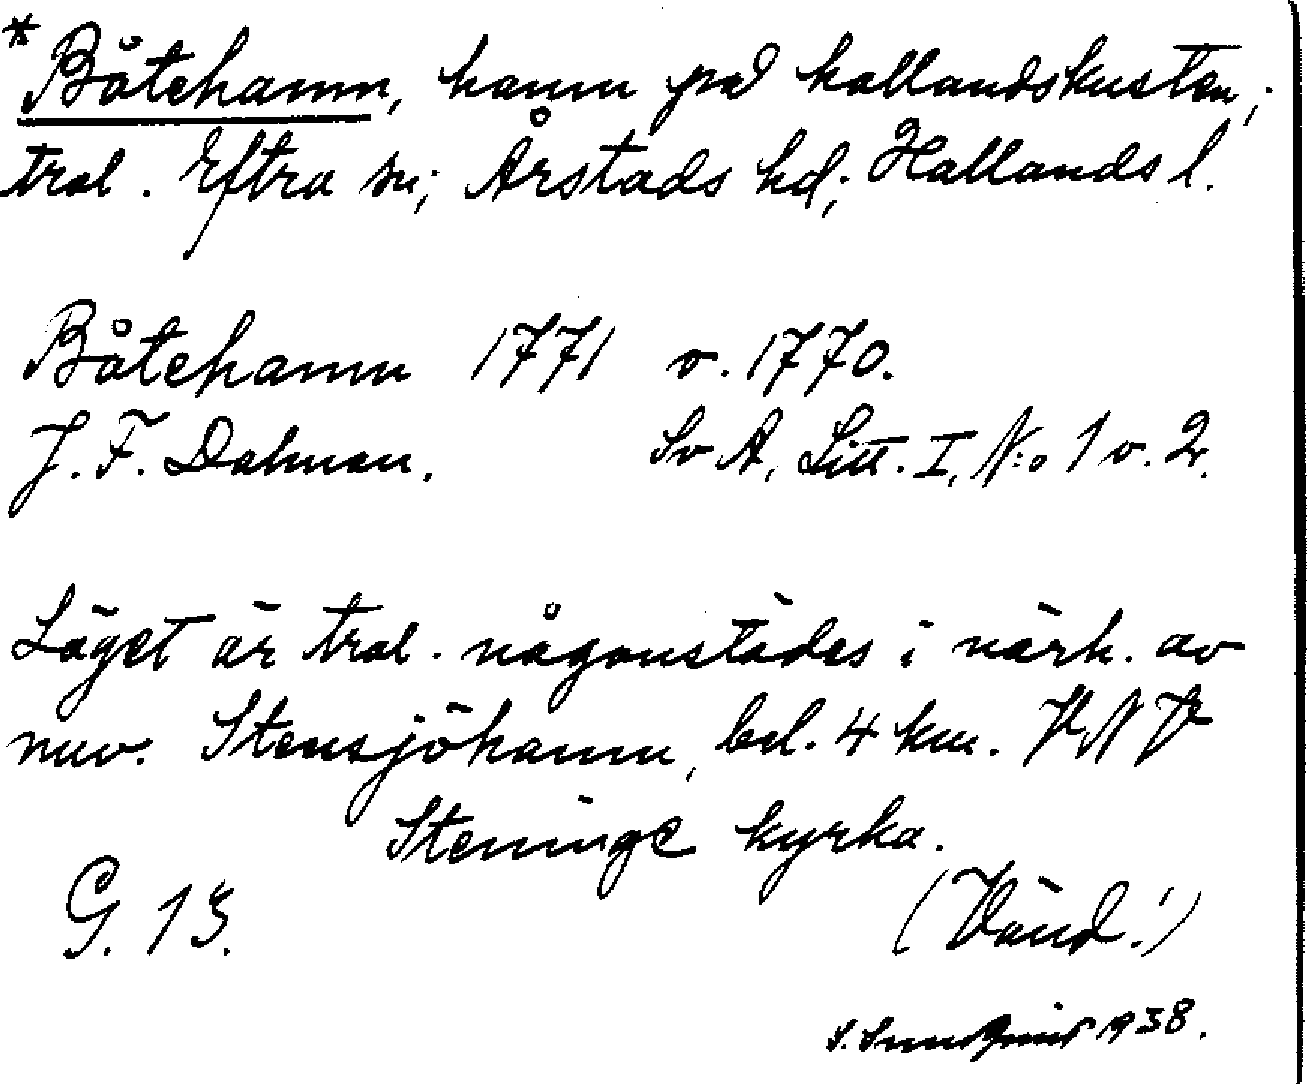 * Båtehamn, hamn på hallandskusten;
trol. Eftra sn; Årstads hd; Hallands l.
Båtehamn 1771 o. 1770.
J. F. Dalman. Sv A, Litt. I, N:o 1 o. 2.
Läget är trol. någonstädes i närh. av
nuv. Stensjöhamn, bel. 4 km. VNV
Steninge kyrka.
G. 13. (Vänd!)
S. Sundqvist 1938.